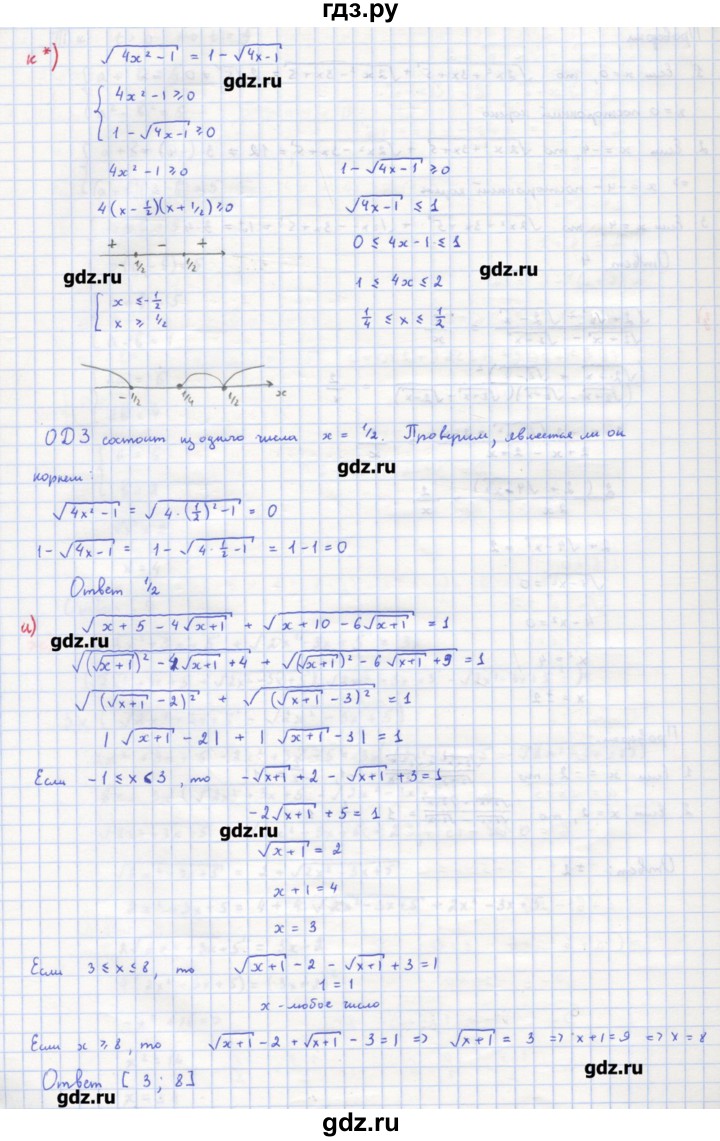 гдз.ру
к*) √(4x² - 1) = 1 - √(4x-1)
gdz.ru
{ 4x² - 1 ≥ 0
1 - √(4x-1) ≥ 0
4x² - 1 ≥ 0
4(x - 1/2)(x + 1/2) ≥ 0
+ - +
- 1/2 1/2
gdz.ru
[ x ≤ - 1/2
x ≥ 1/2
1 - √(4x-1) ≥ 0
√(4x-1) ≤ 1
0 ≤ 4x - 1 ≤ 1
gdz.ru
1 ≤ 4x ≤ 2
1/4 ≤ x ≤ 1/2
- 1/2 1/4 1/2 x
ОДЗ состоит из одного числа x = 1/2. Проверим, является ли он
gdz.ru
корнем:
√(4x² - 1) = √(4·(1/2)² - 1) = 0
1 - √(4x-1) = 1 - √(4·1/2 - 1) = 1 - 1 = 0
Ответ 1/2
и) √(x + 5 - 4√(x+1)) + √(x + 10 - 6√(x+1)) = 1
gdz.ru
√((√(x+1))² - 4√(x+1) + 4) + √((√(x+1))² - 6√(x+1) + 9) = 1
√((√(x+1) - 2)²) + √((√(x+1) - 3)²) = 1
| √(x+1) - 2 | + | √(x+1) - 3 | = 1
Если -1 ≤ x < 3, то -√(x+1) + 2 - √(x+1) + 3 = 1
-2√(x+1) + 5 = 1
gdz.ru
√(x+1) = 2
x + 1 = 4
x = 3
Если 3 ≤ x ≤ 8, то √(x+1) - 2 - √(x+1) + 3 = 1
1 = 1
x - любое число
Если x ≥ 8, то √(x+1) - 2 + √(x+1) - 3 = 1 => √(x+1) = 3 => x + 1 = 9 => x = 8
gdz.ru
Ответ [3; 8]
gdz.ru
gdz.ru